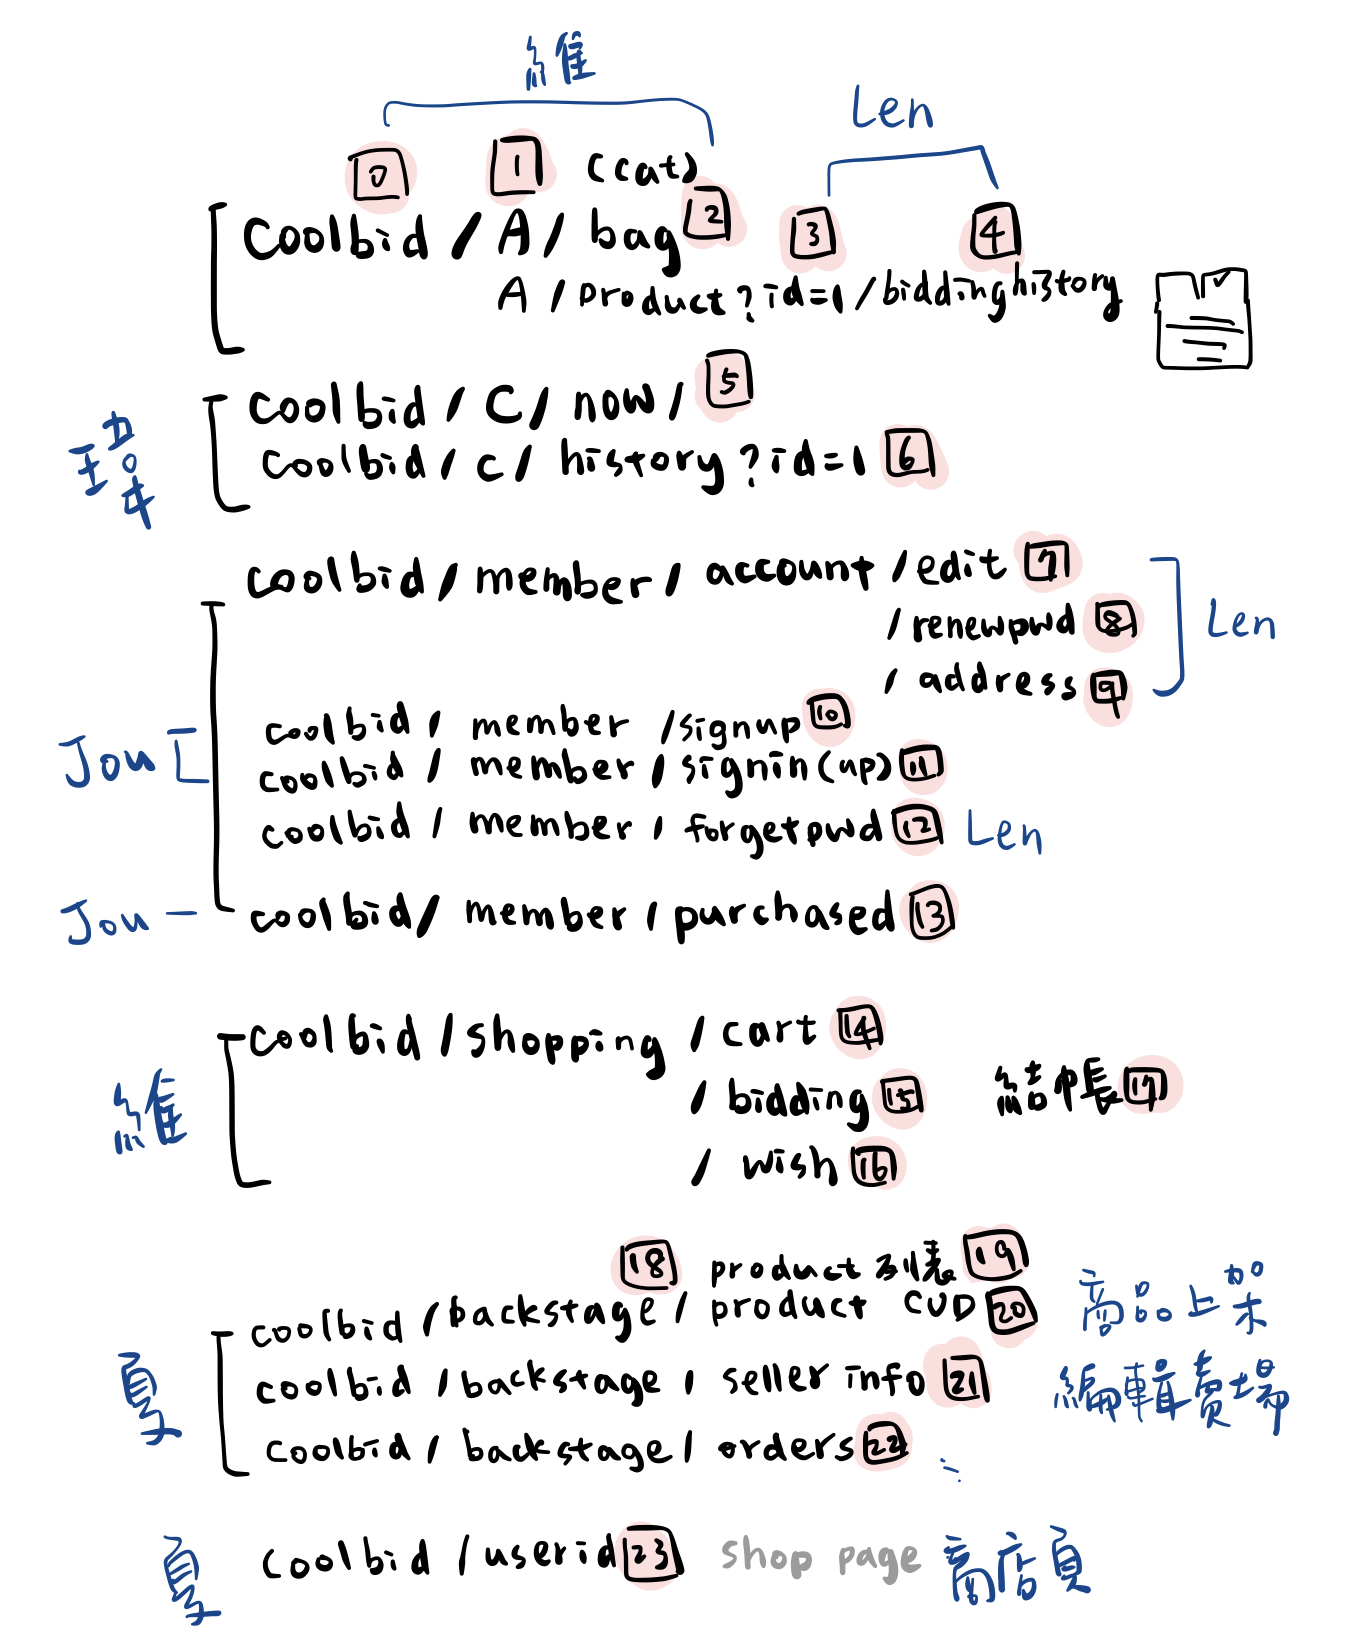 維
Len
0 1 (cat)
coolbid / A / bag 2 3 4
A / product?id=1 / biddinghistory
coolbid / C / now / 5
瑋
coolbid / c / history?id=1 6
coolbid / member / account / edit 7
/ renewpwd 8 Len
/ address 9
coolbid / member / signup 10
Jou
coolbid / member / signin(up) 11
coolbid / member / forgetpwd 12 Len
Jou - coolbid / member / purchased 13
coolbid / shopping / cart 14
維
/ bidding 15 結帳 17
/ wish 16
18 product 列表 19
coolbid / backstage / product CUD 20 商品上架
夏
coolbid / backstage / seller info 21 編輯賣場
coolbid / backstage / orders 22
夏 coolbid / userid 23 shop page 商店頁